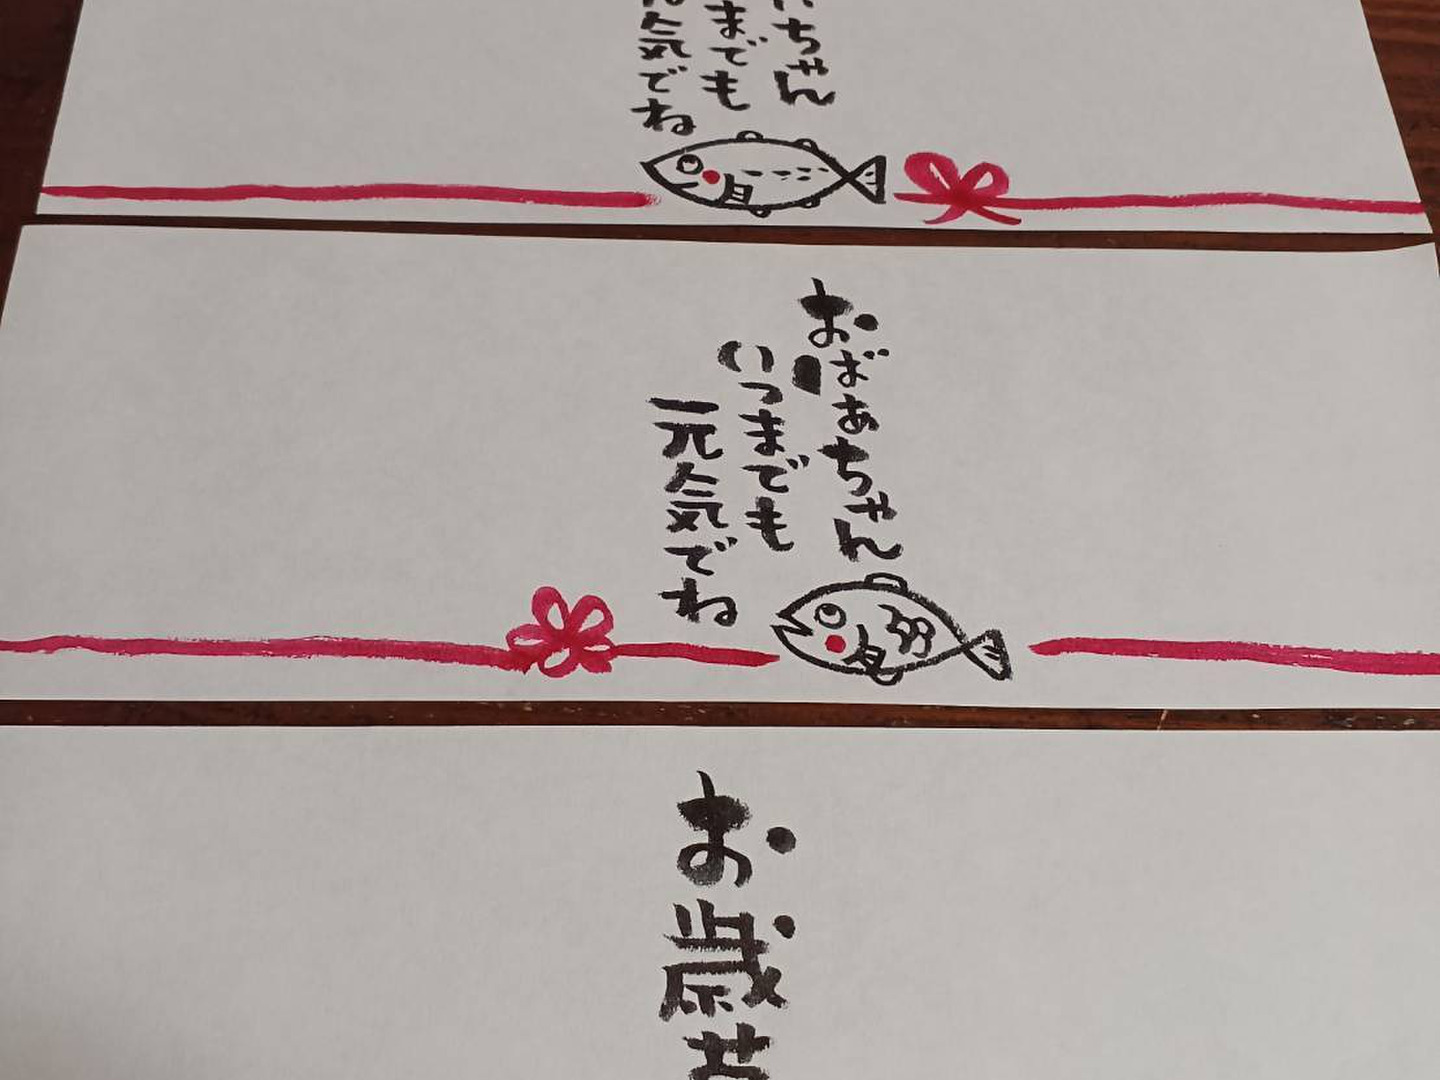 ちゃん
までも
元気でね
おばあちゃん
いつまでも
元気でね
お歳